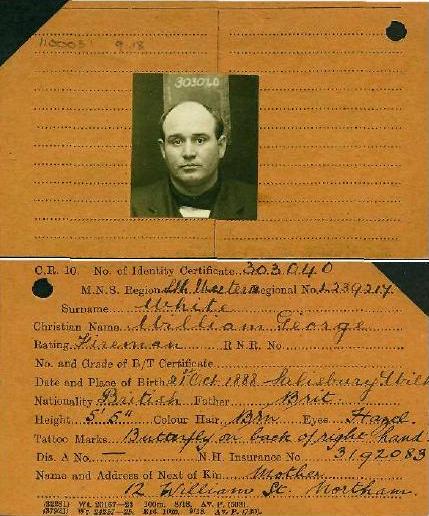 1100051 9.18
303040
C.R. 10. No. of Identity Certificate 303040
M.N.S. Region Sth Western Regional No. 239217
Surname White
Christian Name William George
Rating Fireman R.N.R. No.
No. and Grade of B/T Certificate
Date and Place of Birth 21 Oct 1888 Salisbury Wilt
Nationality British Father Brit
Height 5' 5" Colour Hair Brn Eyes Hazel
Tattoo Marks Butterfly on back of right hand
Dis. A No. — N.H. Insurance No. 3192083
Name and Address of Next of Kin Mother
12 Williams St. Northam
(32281) Wt. 20157—23 100m. 8/18. Av. P. (593).
(37941) Wt. 24257—25. Rpt. 10m. 9/18. Av. P. (739).